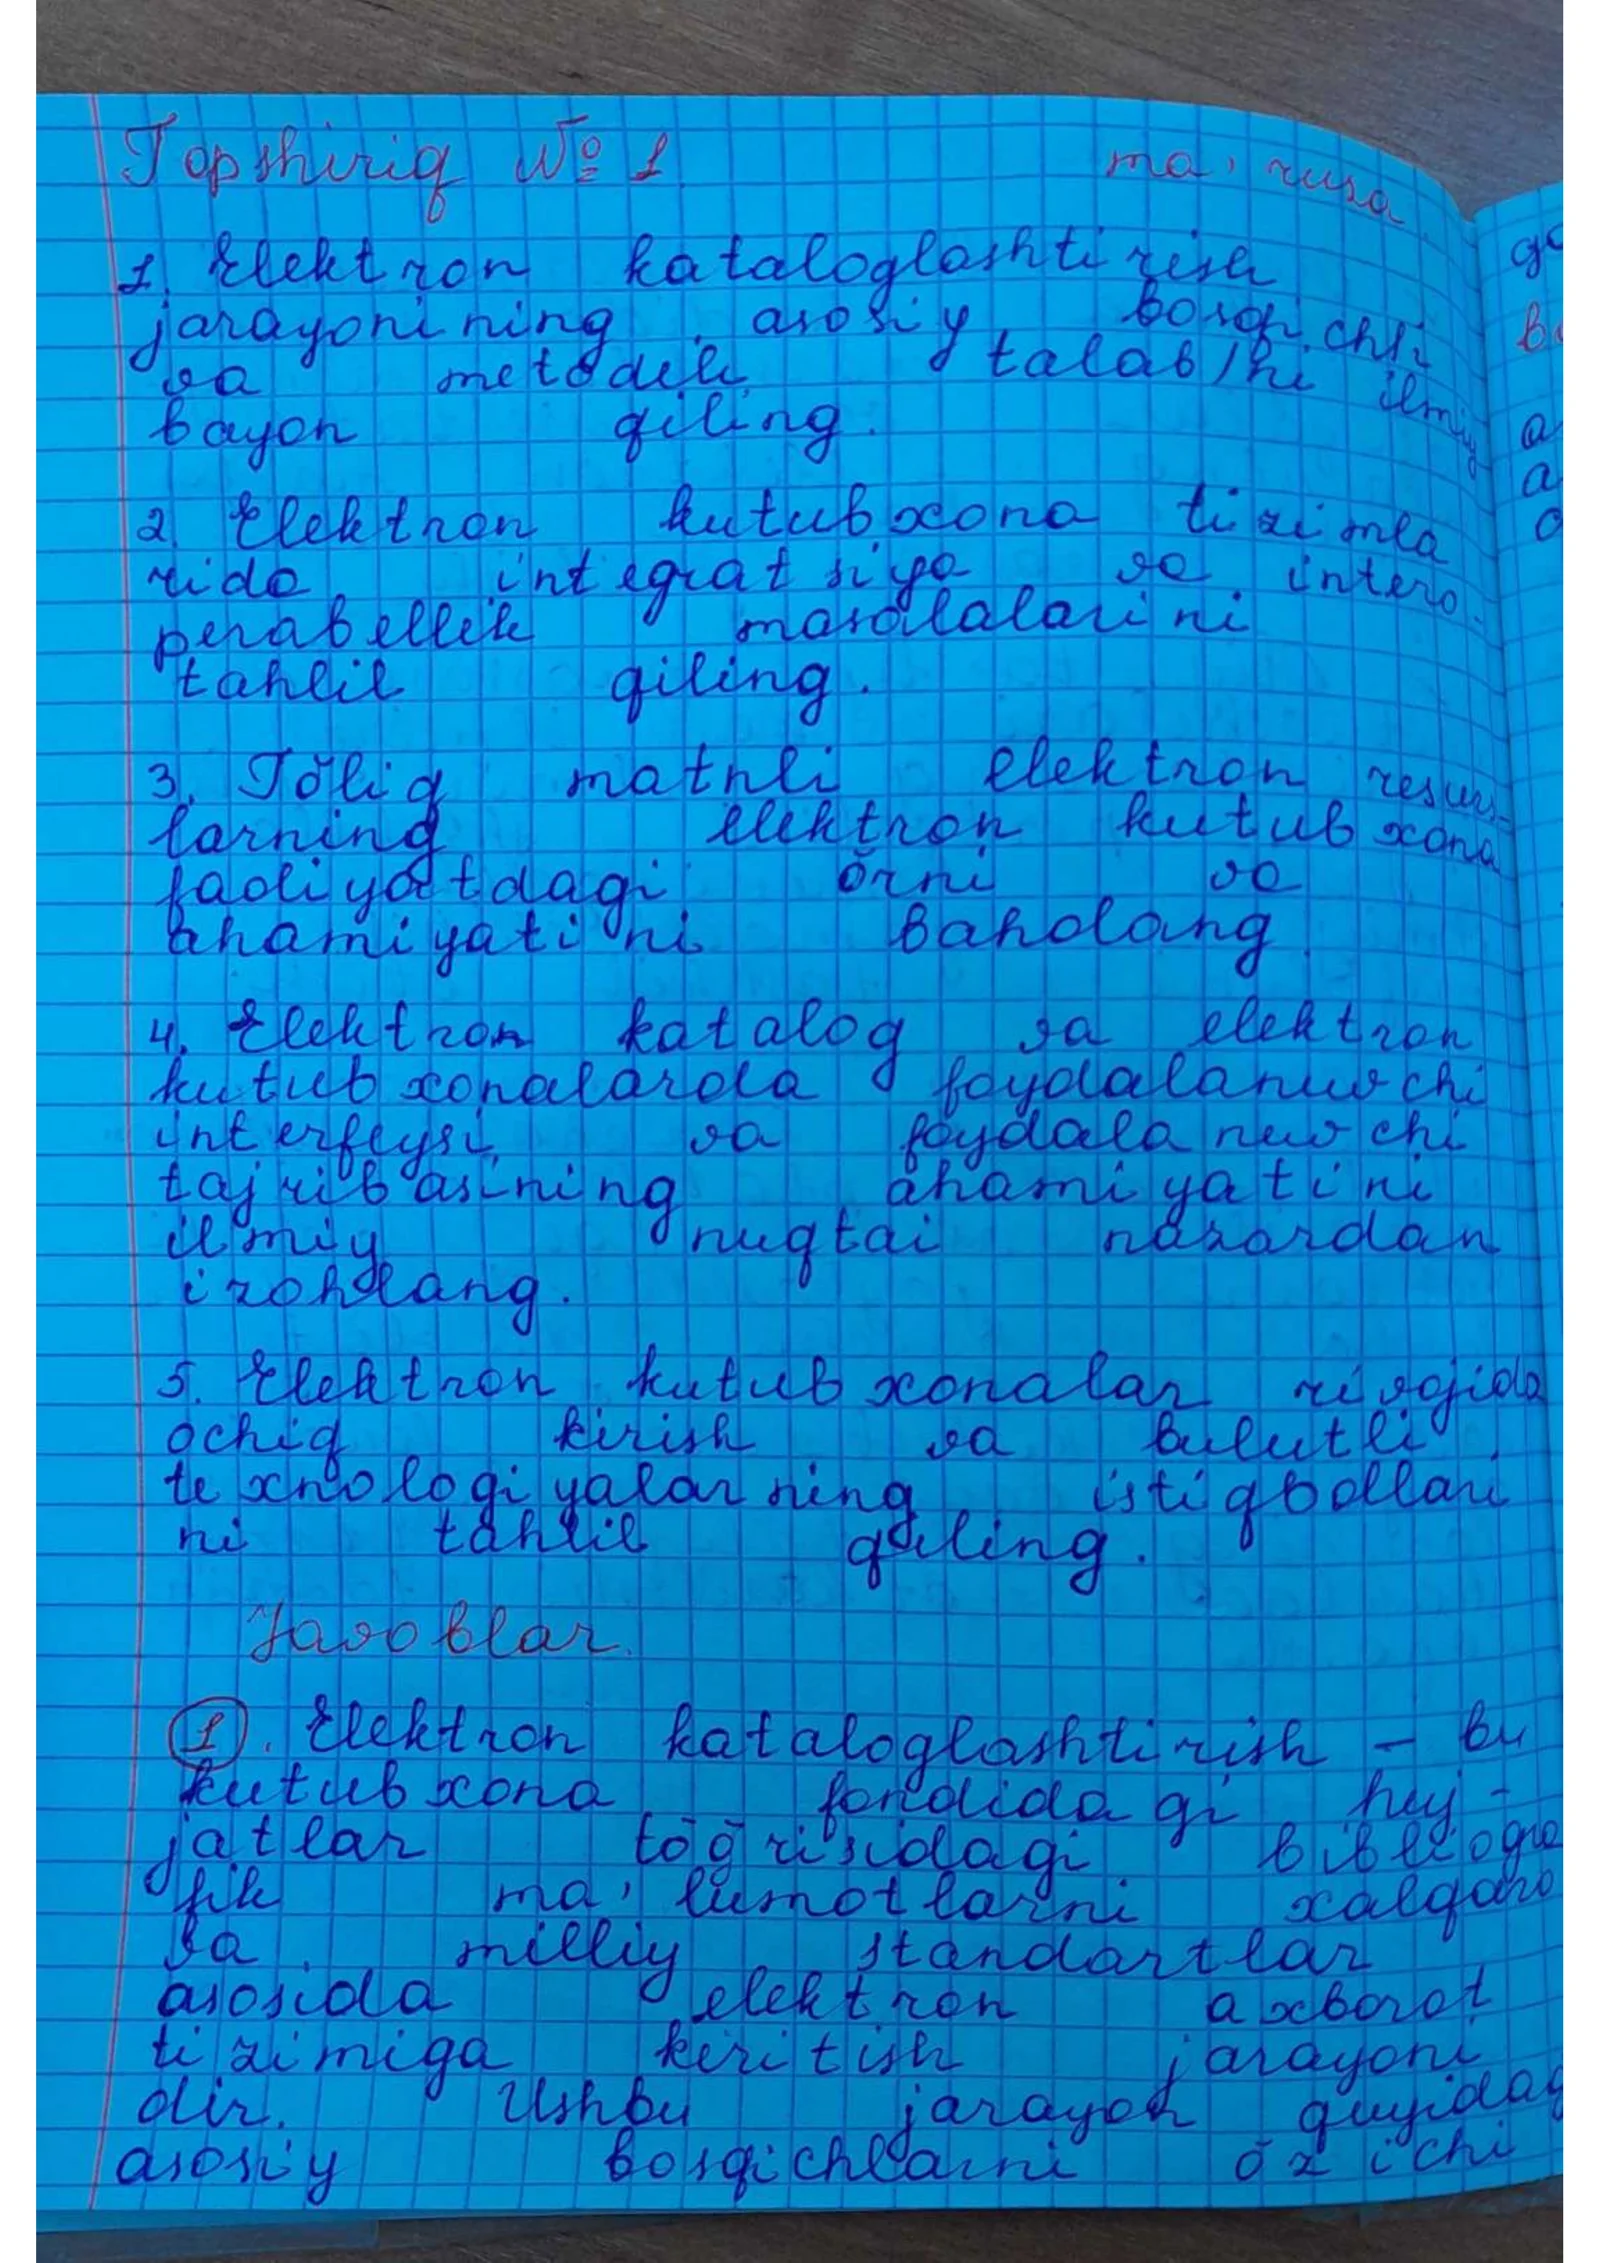 Topshiriq № 1 ma'ruza
1. Elektron kataloglashtirish
jarayonining asosiy bosqichli
va metodik talab/ni ilmiy
bayon qiling.
2. Elektron kutubxona tizimla
rida integratsiya va intero-
perabellik masalalarini
tahlil qiling.
3. Tŏliq matnli elektron resurs-
larning elektron kutubxona
faoliyatdagi ŏrni va
ahamiyatini baholang.
4. Elektron katalog va elektron
kutubxonalarda foydalanuvchi
interfeysi va foydalanuvchi
tajribasining ahamiyatini
ilmiy nuqtai nazardan
izohlang.
5. Elektron kutubxonalar rivojida
ochiq kirish va bulutli
texnologiyalarning istiqbollari
ni tahlil qiling.
Javoblar.
1. Elektron kataloglashtirish – bu
kutubxona fondidagi huj-
jatlar tŏğrisidagi bibliogra
fik ma'lumotlarni xalqaro
va milliy standartlar
asosida elektron axborot
tizimiga kiritish jarayoni
dir. Ushbu jarayon quyidag
asosiy bosqichlarni ŏz ichi